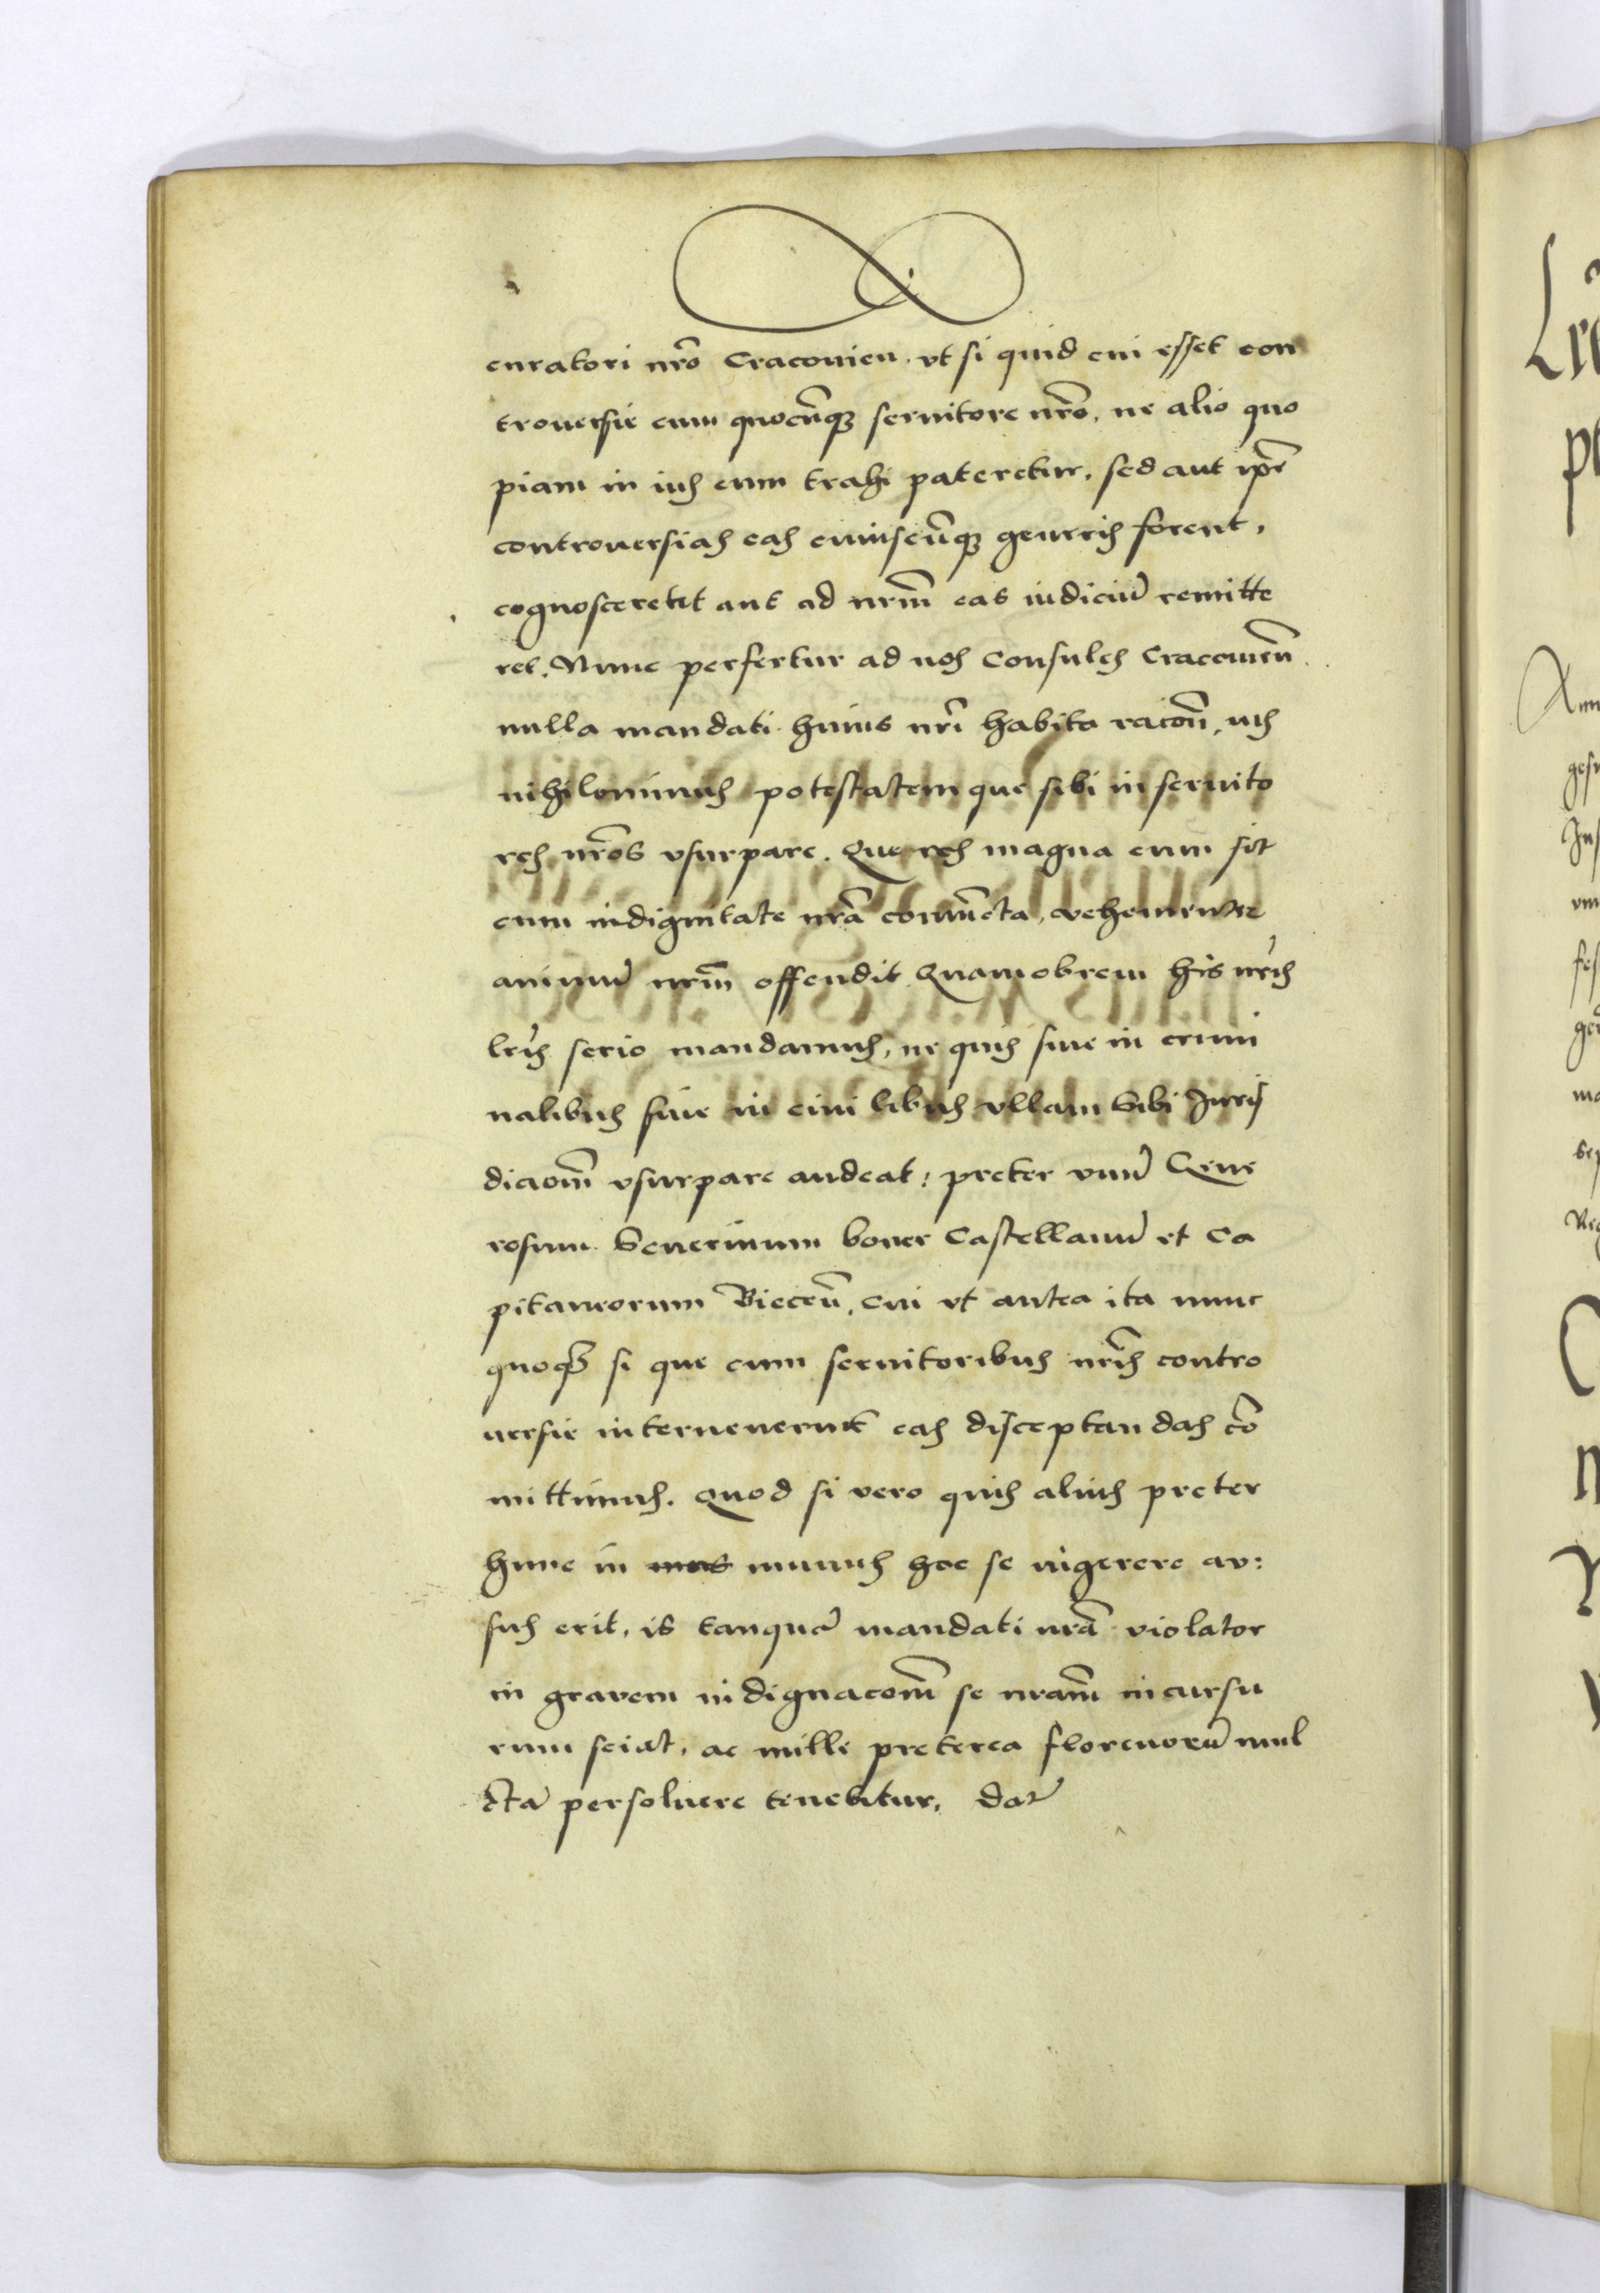 curatori nrõ Cracovien. vt si quid cui esset con
trouersie cum quocũq3 seruitore nrõ, ne alio quo
piam in ius eum trahi pateretur, sed aut ip̃e
controuersias eas cuiuscũq3 generis forent,
cognosceret aut ad nrm̃ eas iudiciũ remitte
ret. Nunc perfertur ad nos Consules Cracouieñ
nulla mandati huius nrĩ habita racioñ, ius
nihilominus potestatemque sibi in seruito
res nrõs vsurpare. Que res magna cum sit
cum indignitate nrã coniũcta, vehementer
animũ nrm̃ offendit Quamobrem his nrĩs
lrĩs serio mandamus, ne quis siue in crimi
nalibus siue in ciuilibus vllam Sibi Juris
dicaom̃ vsurpare audeat: preter vnũ Gene
rosum Seuerinum boner Castellanũ et Ca
pitaneorum Bieceñ, cui vt antea ita nunc
quoq3 si que cum seruitoribus nrĩs contro
uersie interuenerint eas disceptandas cõ
mittimus. Quod si vero quis alius preter
hunc in munus hoc se ingerere au:
sus erit, is tanquã mandati nrĩ violator
in grauem indignacom̃ se nram̃ incursu
rum sciat, ac mille preterea florenorũ mul
ctã persoluere tenebitur. dat̃